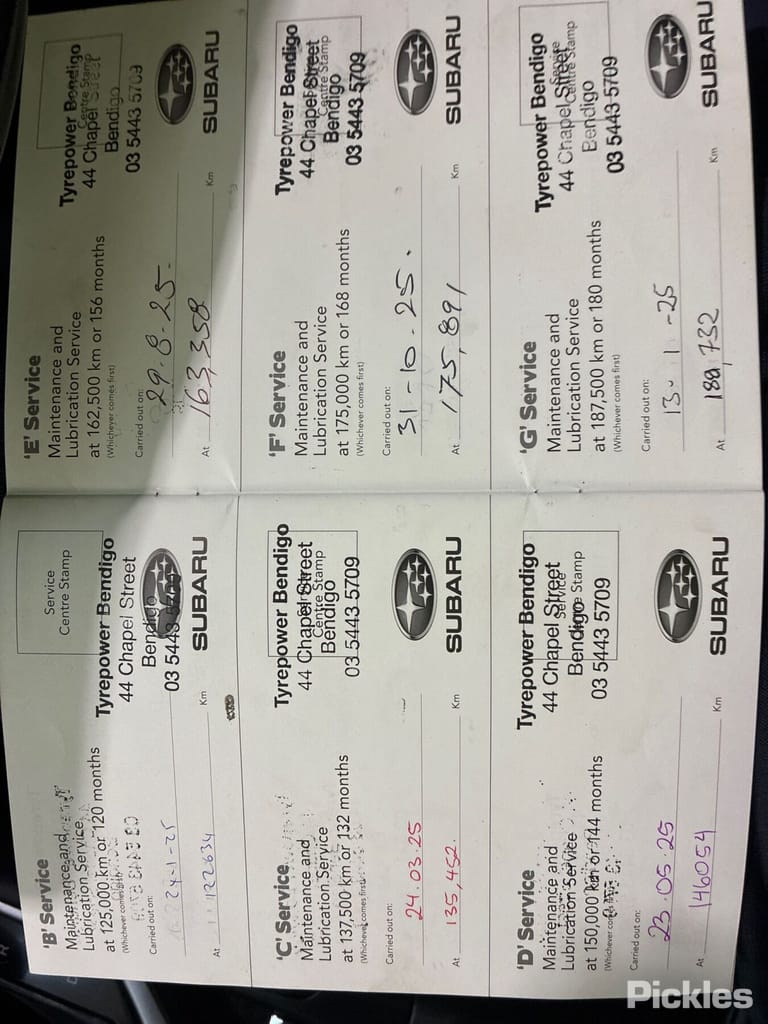 'B' Service
Maintenance and
Lubrication Service
at 125,000 km or 120 months
(Whichever comes first)
Carried out on:
24-1-25
At 122634 Km
Service
Centre Stamp
Tyrepower Bendigo
44 Chapel Street
Bendigo
03 5443 5709
SUBARU
'C' Service
Maintenance and
Lubrication Service
at 137,500 km or 132 months
(Whichever comes first)
Carried out on:
24.03.25
At 135,452. Km
Service
Centre Stamp
Tyrepower Bendigo
44 Chapel Street
Bendigo
03 5443 5709
SUBARU
'D' Service
Maintenance and
Lubrication Service
at 150,000 km or 144 months
(Whichever comes first)
Carried out on:
23.05.25
At 146054 Km
Service
Centre Stamp
Tyrepower Bendigo
44 Chapel Street
Bendigo
03 5443 5709
SUBARU
'E' Service
Maintenance and
Lubrication Service
at 162,500 km or 156 months
(Whichever comes first)
Carried out on:
29-8-25-
At 163,358 Km
Centre Stamp
Tyrepower Bendigo
44 Chapel Street
Bendigo
03 5443 5709
SUBARU
'F' Service
Maintenance and
Lubrication Service
at 175,000 km or 168 months
(Whichever comes first)
Carried out on:
31-10-25.
At 175,891 Km
Centre Stamp
Tyrepower Bendigo
44 Chapel Street
Bendigo
03 5443 5709
SUBARU
'G' Service
Maintenance and
Lubrication Service
at 187,500 km or 180 months
(Whichever comes first)
Carried out on:
13-1-25
At 188,732 Km
Service
Centre Stamp
Tyrepower Bendigo
44 Chapel Street
Bendigo
03 5443 5709
SUBARU
Pickles